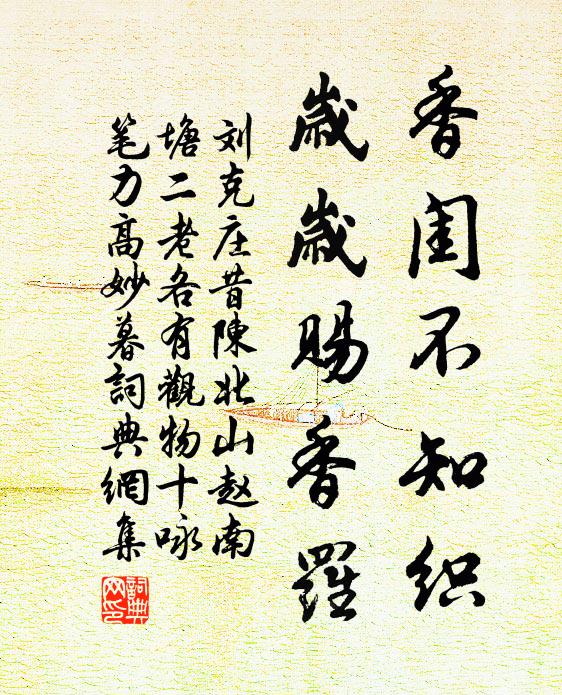 香闺不知织
歲歲賜香羅
刘克庄昔陳北山赵南
塘二老各有觀物十咏
笔力高妙暮詞典網集
詞典网印